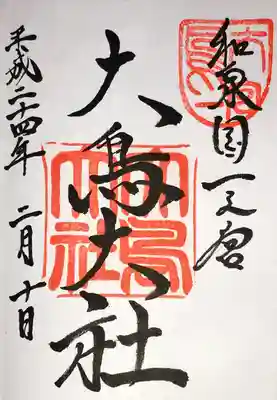 和泉国一之宮
大鳥大社
大鳥大社
平成二十四年 二月十日